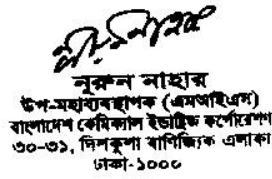 নূরুন নাহার
উপ-মহাব্যবস্থাপক (এমআইএস)
বাংলাদেশ কেমিক্যাল ইন্ডাষ্ট্রিজ কর্পোরেশন
৩০-৩১, দিলকুশা বাণিজ্যিক এলাকা
ঢাকা-১০০০